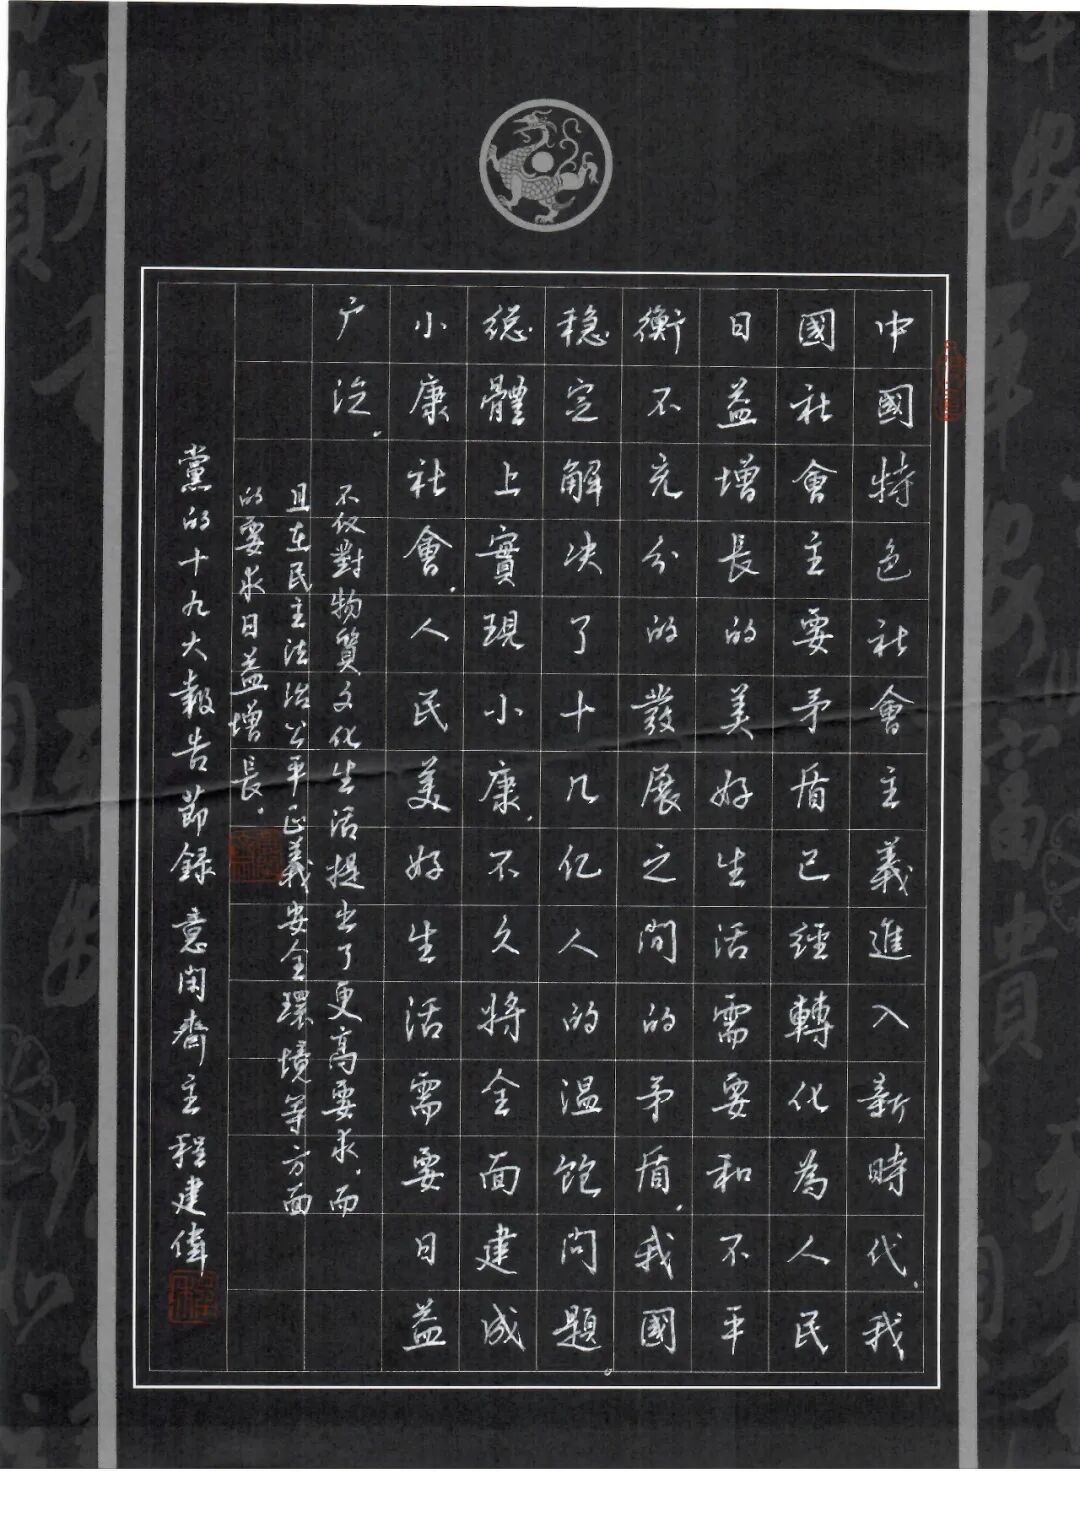 中國特色社會主義進入新時代，我
國社會主要矛盾已經轉化為人民
日益增長的美好生活需要和不平
衡不充分的發展之間的矛盾，我國
穩定解决了十几亿人的温飽問題。
總體上實現小康，不久將全面建成
小康社會，人民美好生活需要日益
广泛，
不仅對物質文化生活提出了更高要求，而
且在民主法治公平正義安全環境等方面
的要求日益增長。
黨的十九大報告節録 意閑齋主程建偉